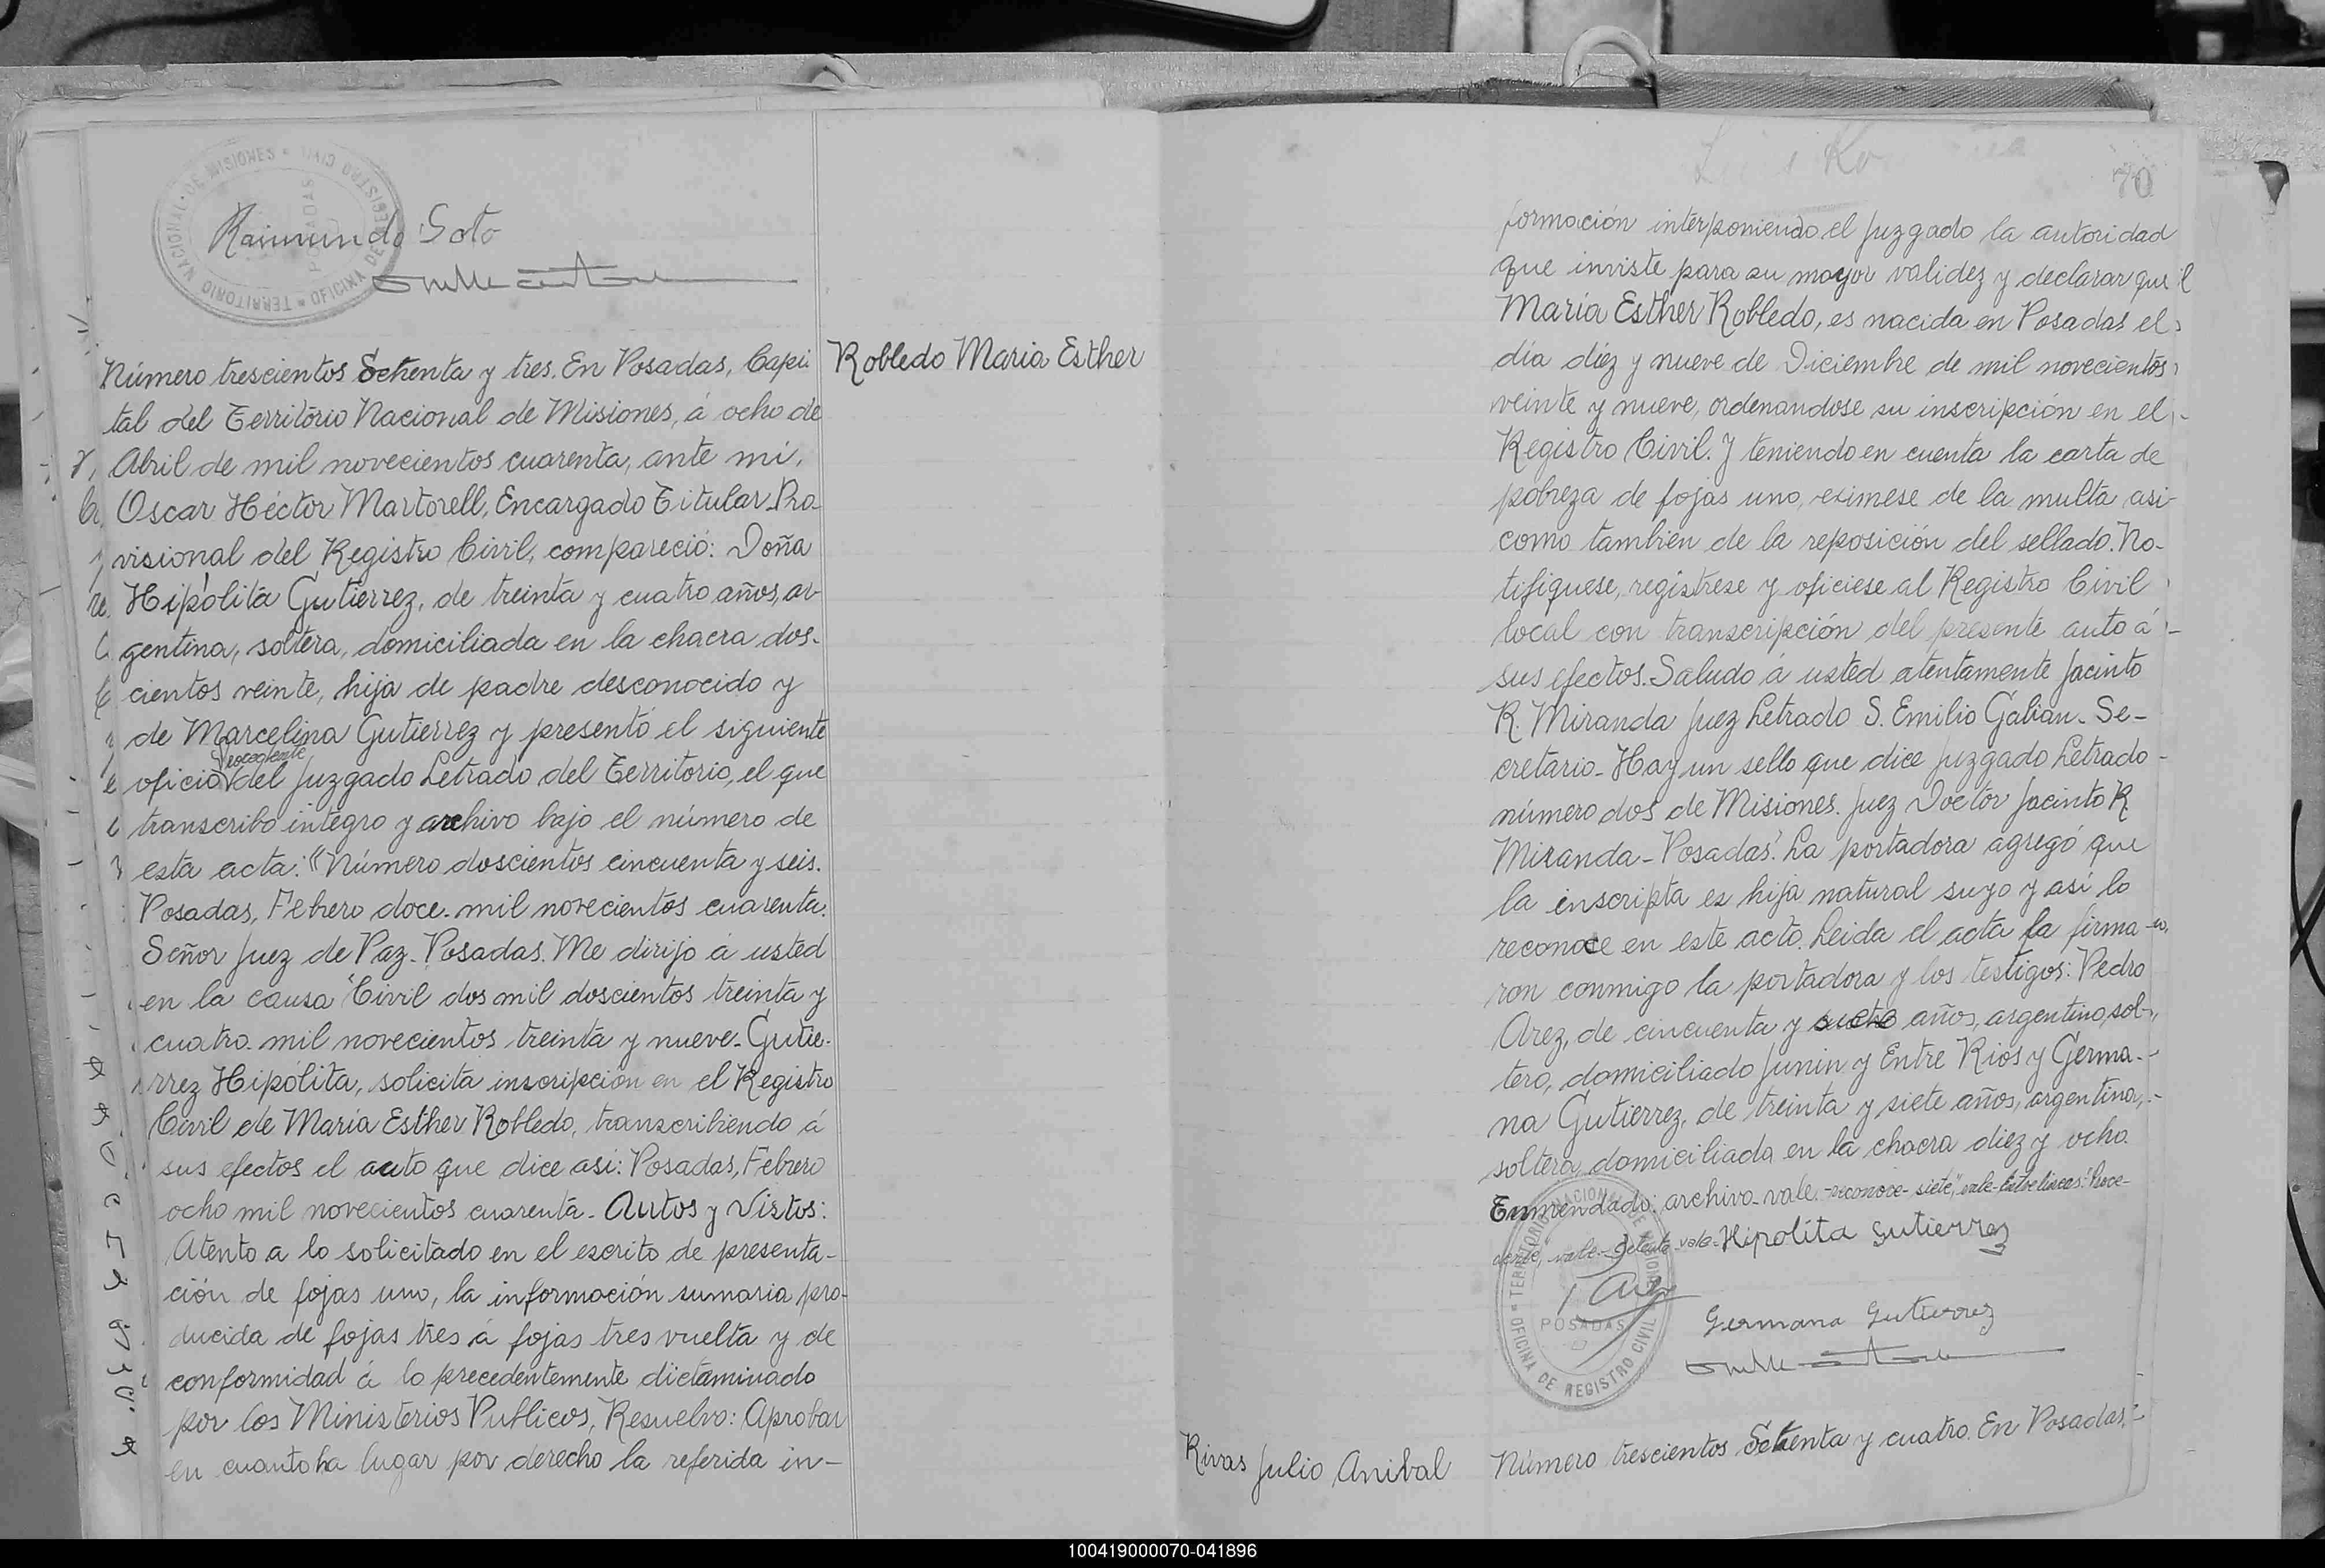 TERRITORIO NACIONAL DE MISIONES OFICINA DE REGISTRO CIVIL POSADAS
Raimundo Soto
Número trescientos Setenta y tres. En Posadas, Capi-
Robledo Maria Esther
tal del Territorio Nacional de Misiones, á ocho de
Abril de mil novecientos cuarenta, ante mi,
Oscar Héctor Martorell, Encargado Titular Pro-
visional del Registro Civil, compareció: Doña
Hipólita Gutierrez, de treinta y cuatro años, ar-
gentina, soltera, domiciliada en la chacra dos-
cientos veinte, hija de padre desconocido y
de Marcelina Gutierrez y presentó el siguiente
Procedente
oficio del Juzgado Letrado del Territorio, el que
transcribo integro y archivo bajo el número de
esta acta: "Número doscientos cincuenta y seis.
Posadas, Febrero doce. mil novecientos cuarenta.
Señor Juez de Paz. Posadas. Me dirijo á usted
en la causa "Civil dos mil doscientos treinta y
cuatro. mil novecientos treinta y nueve. Gutie-
rrez Hipólita, solicita inscripción en el Registro
Civil de María Esther Robledo, transcribiendo á
sus efectos el auto que dice asi: Posadas, Febrero
ocho mil novecientos cuarenta. Autos y Vistos:
Atento a lo solicitado en el escrito de presenta-
ción de fojas uno, la información sumaria pro-
ducida de fojas tres á fojas tres vuelta y de
conformidad á lo precedentemente dictaminado
por los Ministerios Publicos, Resuelvo: Aprobar
en cuanto ha lugar por derecho la referida in-
70
formación interponiendo el Juzgado la autoridad
que inviste para su mayor validez y declarar que
María Esther Robledo, es nacida en Posadas el
día diez y nueve de Diciembre de mil novecientos
veinte y nueve, ordenandose su inscripción en el
Registro Civil. Y teniendo en cuenta la carta de
pobreza de fojas uno, eximese de la multa asi
como tambien de la reposición del sellado. No-
tifiquese, regístrese y oficiese al Registro Civil
local con transcripción del presente auto á
sus efectos. Saludo á usted atentamente Jacinto
R. Miranda Juez Letrado S. Emilio Gabian. Se-
cretario. Hay un sello que dice Juzgado Letrado
número dos de Misiones. Juez Doctor Jacinto R.
Miranda - Posadas". La portadora agregó que
la inscripta es hija natural suya y así lo
reconoce en este acto. Leida el acta la firma-
ron conmigo la portadora y los testigos: Pedro
Arez, de cincuenta y siete años, argentino, sol-
tero, domiciliado Junin y Entre Rios y Germa-
na Gutierrez, de treinta y siete años, argentina,
soltera, domiciliada en la chacra diez y ocho.
Enmendado: archivo-vale-reconoce-siete, "vale-Entre líneas: "Proce-
dente, vale-Setenta-vale-Hipolita Gutierrez
TERRITORIO NACIONAL DE MISIONES OFICINA DE REGISTRO CIVIL POSADAS
Germana Gutierrez
Rivas Julio Anibal
Número trescientos Setenta y cuatro. En Posadas,
100419000070-041896